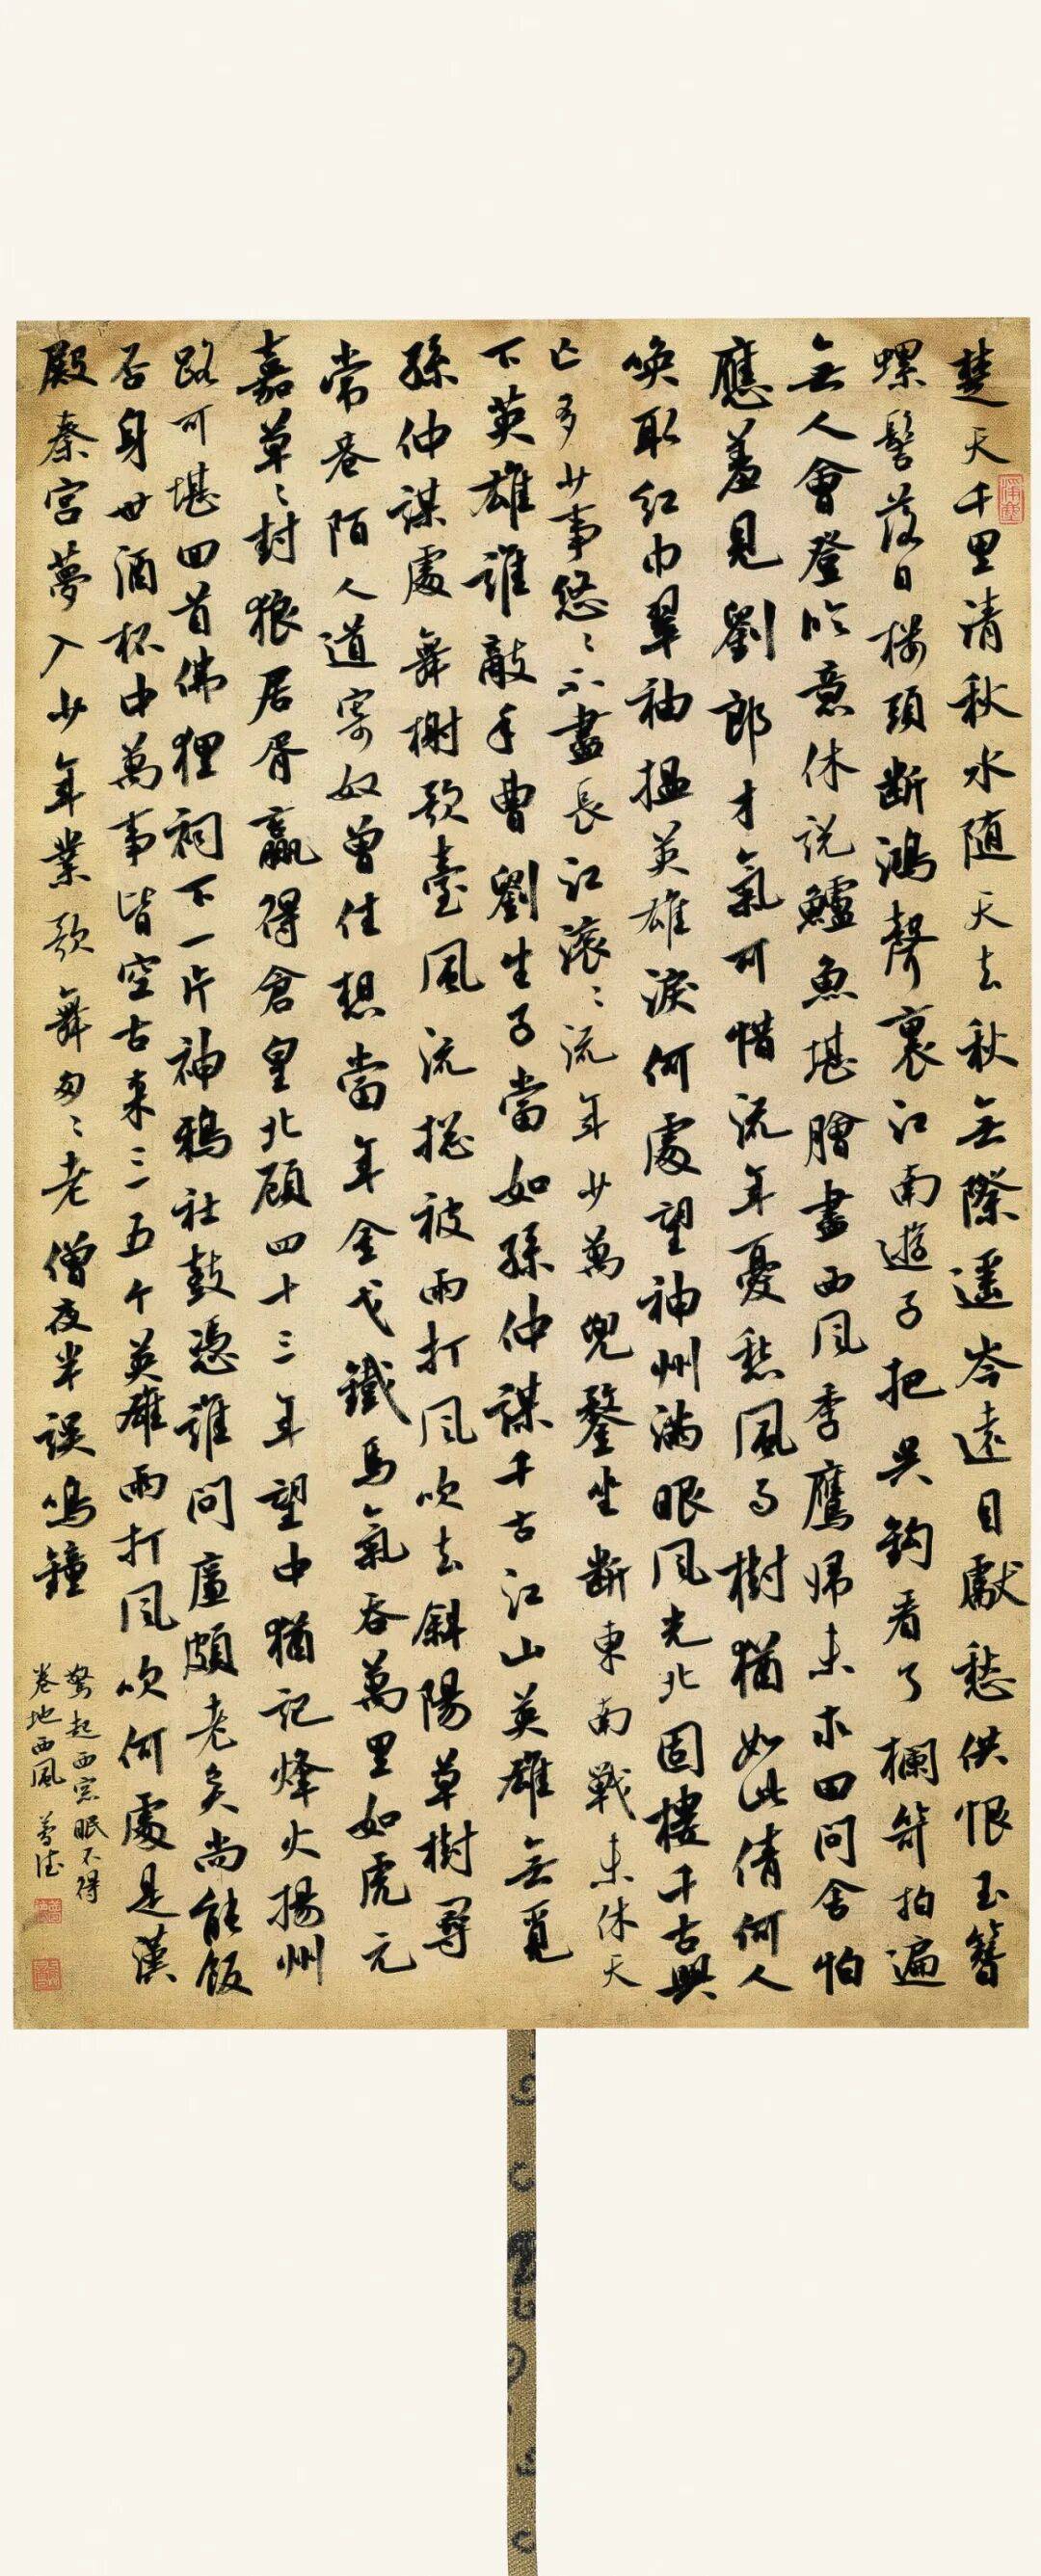 楚天千里清秋水随天去秋無際遥岑遠目獻愁供恨玉簪
螺髻落日樓頭断鴻聲裏江南遊子把吴鈎看了欄拍遍
無人會登臨意休说鱸魚堪膾盡西風季鷹歸未求田問舍怕
應羞見劉郎才氣可惜流年憂愁風雨樹猶如此倩何人
唤取紅巾翠袖揾英雄淚何處望神州滿眼風光北固樓千古興
亡多少事悠々不盡長江滚々流年少萬兜鍪坐断東南戰未休天
下英雄誰敵手曹劉生子當如孫仲謀千古江山英雄無覓
孫仲謀處舞榭歌臺風流揔被雨打風吹去斜陽草樹尋
常巷陌人道寄奴曾住想當年金戈鐵馬氣吞萬里如虎元
嘉草々封狼居胥赢得倉皇北顧四十三年望中猶記烽火揚州
路可堪回首佛狸祠下一片神鴉社鼓憑誰問廉頗老矣尚能飯
否身世酒杯中萬事皆空古来三五个英雄雨打風吹何處是漢
殿秦宫夢入少年業歌舞匆々老僧夜半誤鳴鐘
驚起西窓眠不得
卷地西風